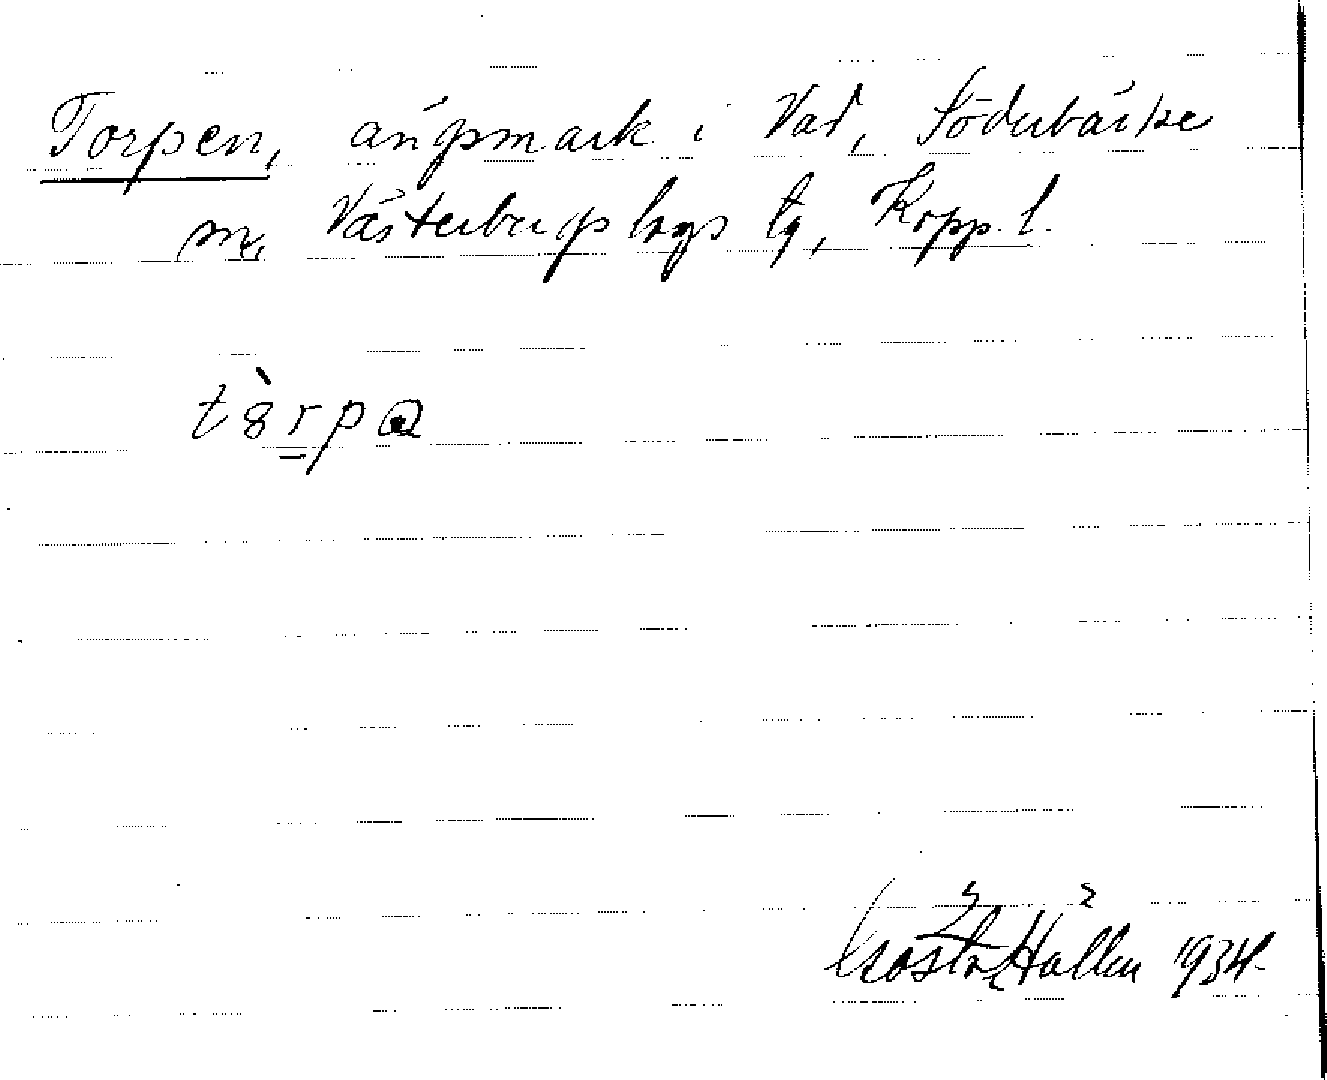 Torpen, ängsmark i Vad, Söderbärke
sn, Västerbergslags tg, Kopp. l.
tɞ̀rpa
Gösta Hållén 1934